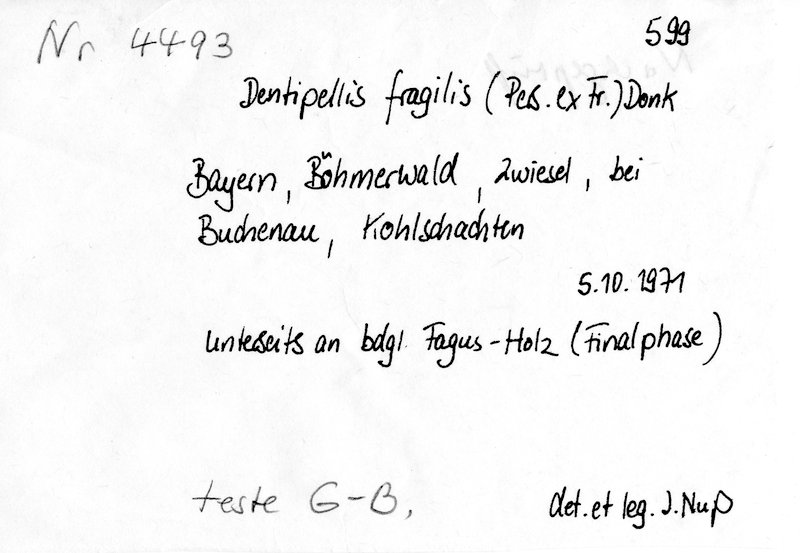 Nr 4493
599
Dentipellis fragilis (Pers. ex Fr.) Donk
Bayern, Böhmerwald, Zwiesel, bei
Buchenau, Kohlschachten
5.10.1971
unterseits an bdgl. Fagus-Holz (Finalphase)
teste G-B,
det. et leg. J. Nuß